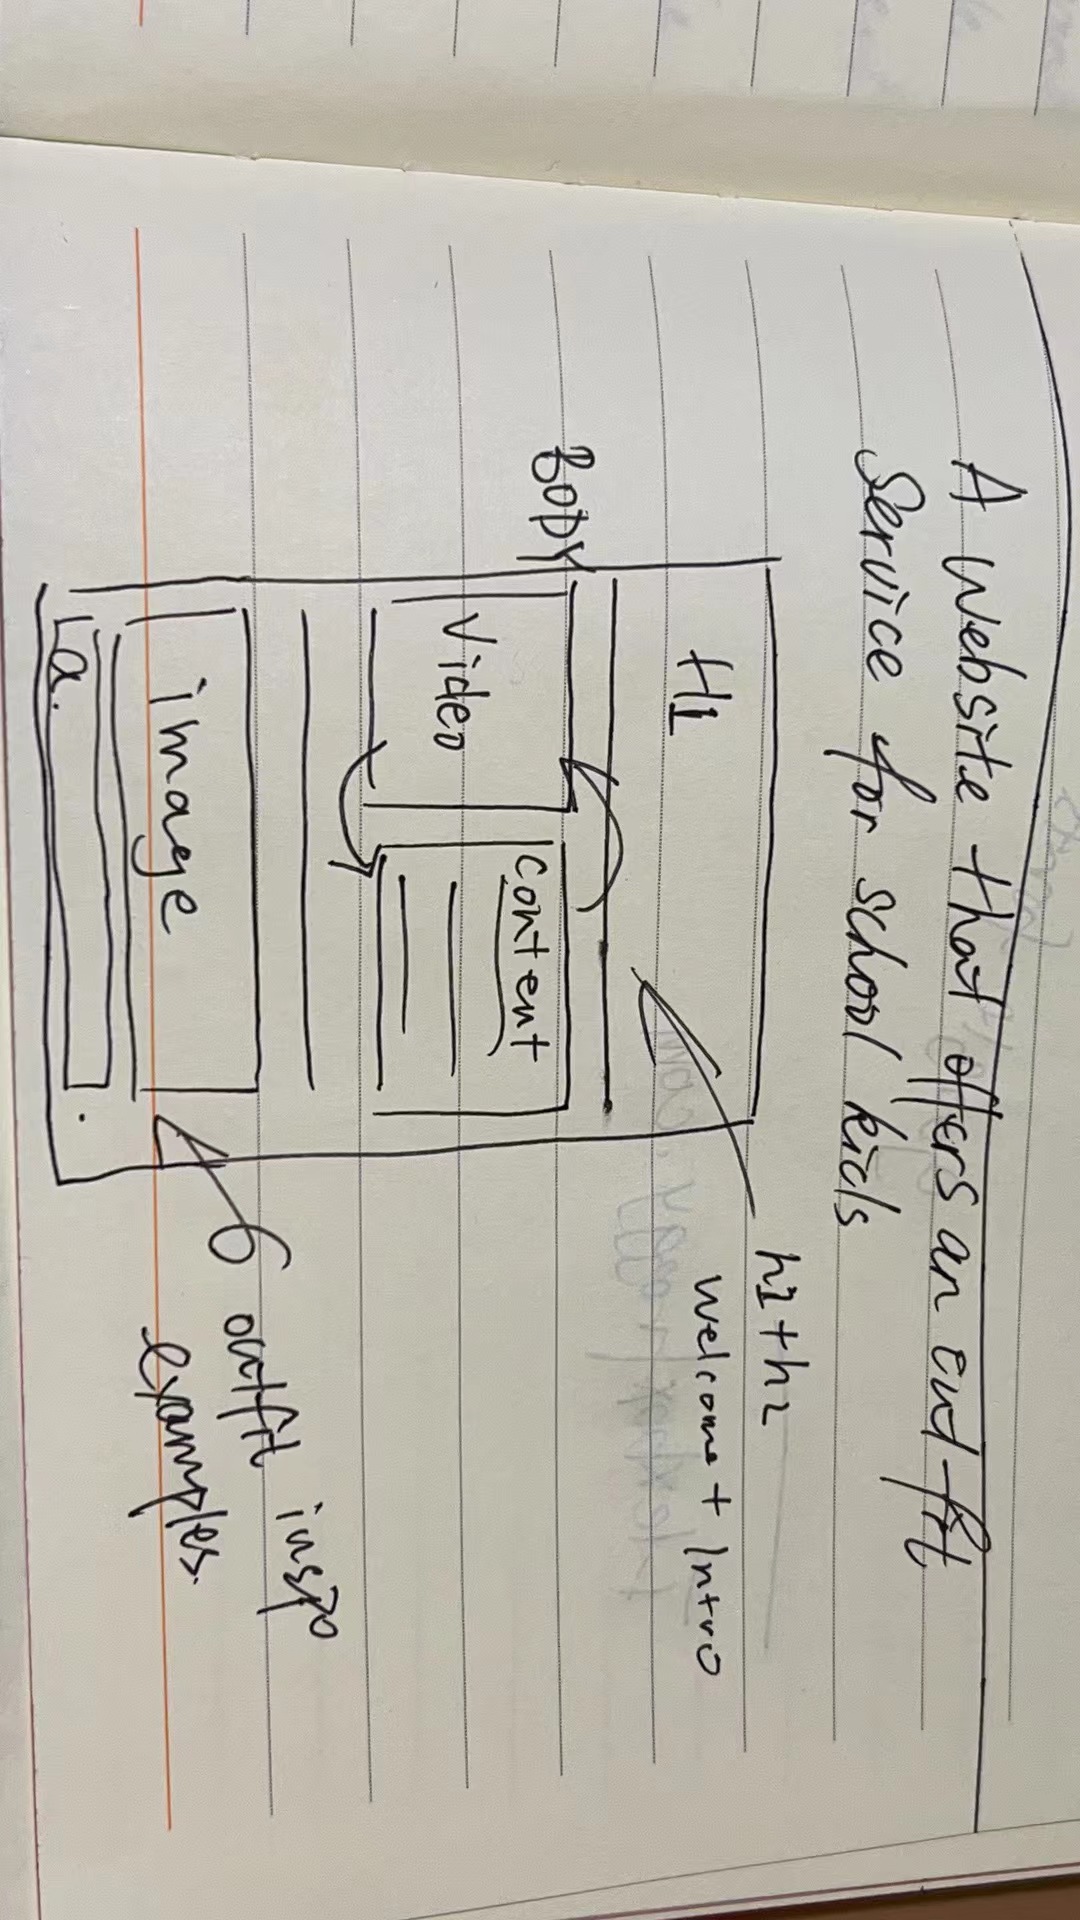 A website that offers an outfit
service for school kids
h1+h2
welcome + Intro
H1
BODY
Video
content
image
a.
outfit inspo
examples.